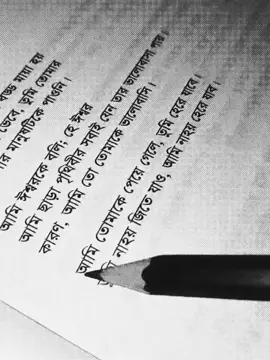 বড্ড মায়া হয়
ভেবে, তুমি তোমার
মানুষটিকে পাওনি।
আমি ঈশ্বরকে বলি; হে ঈশ্বর
আমি ছাড়া পৃথিবীর সবাই যেন তার ভালোবাসা পায়।
কারণ, আমি তো তোমাকে ভালোবাসি।
আমি তোমাকে পেয়ে গেলে, তুমি হেরে যাবে।
নাহয় জিতে যাও, আমি নাহয় হেরে যাব।